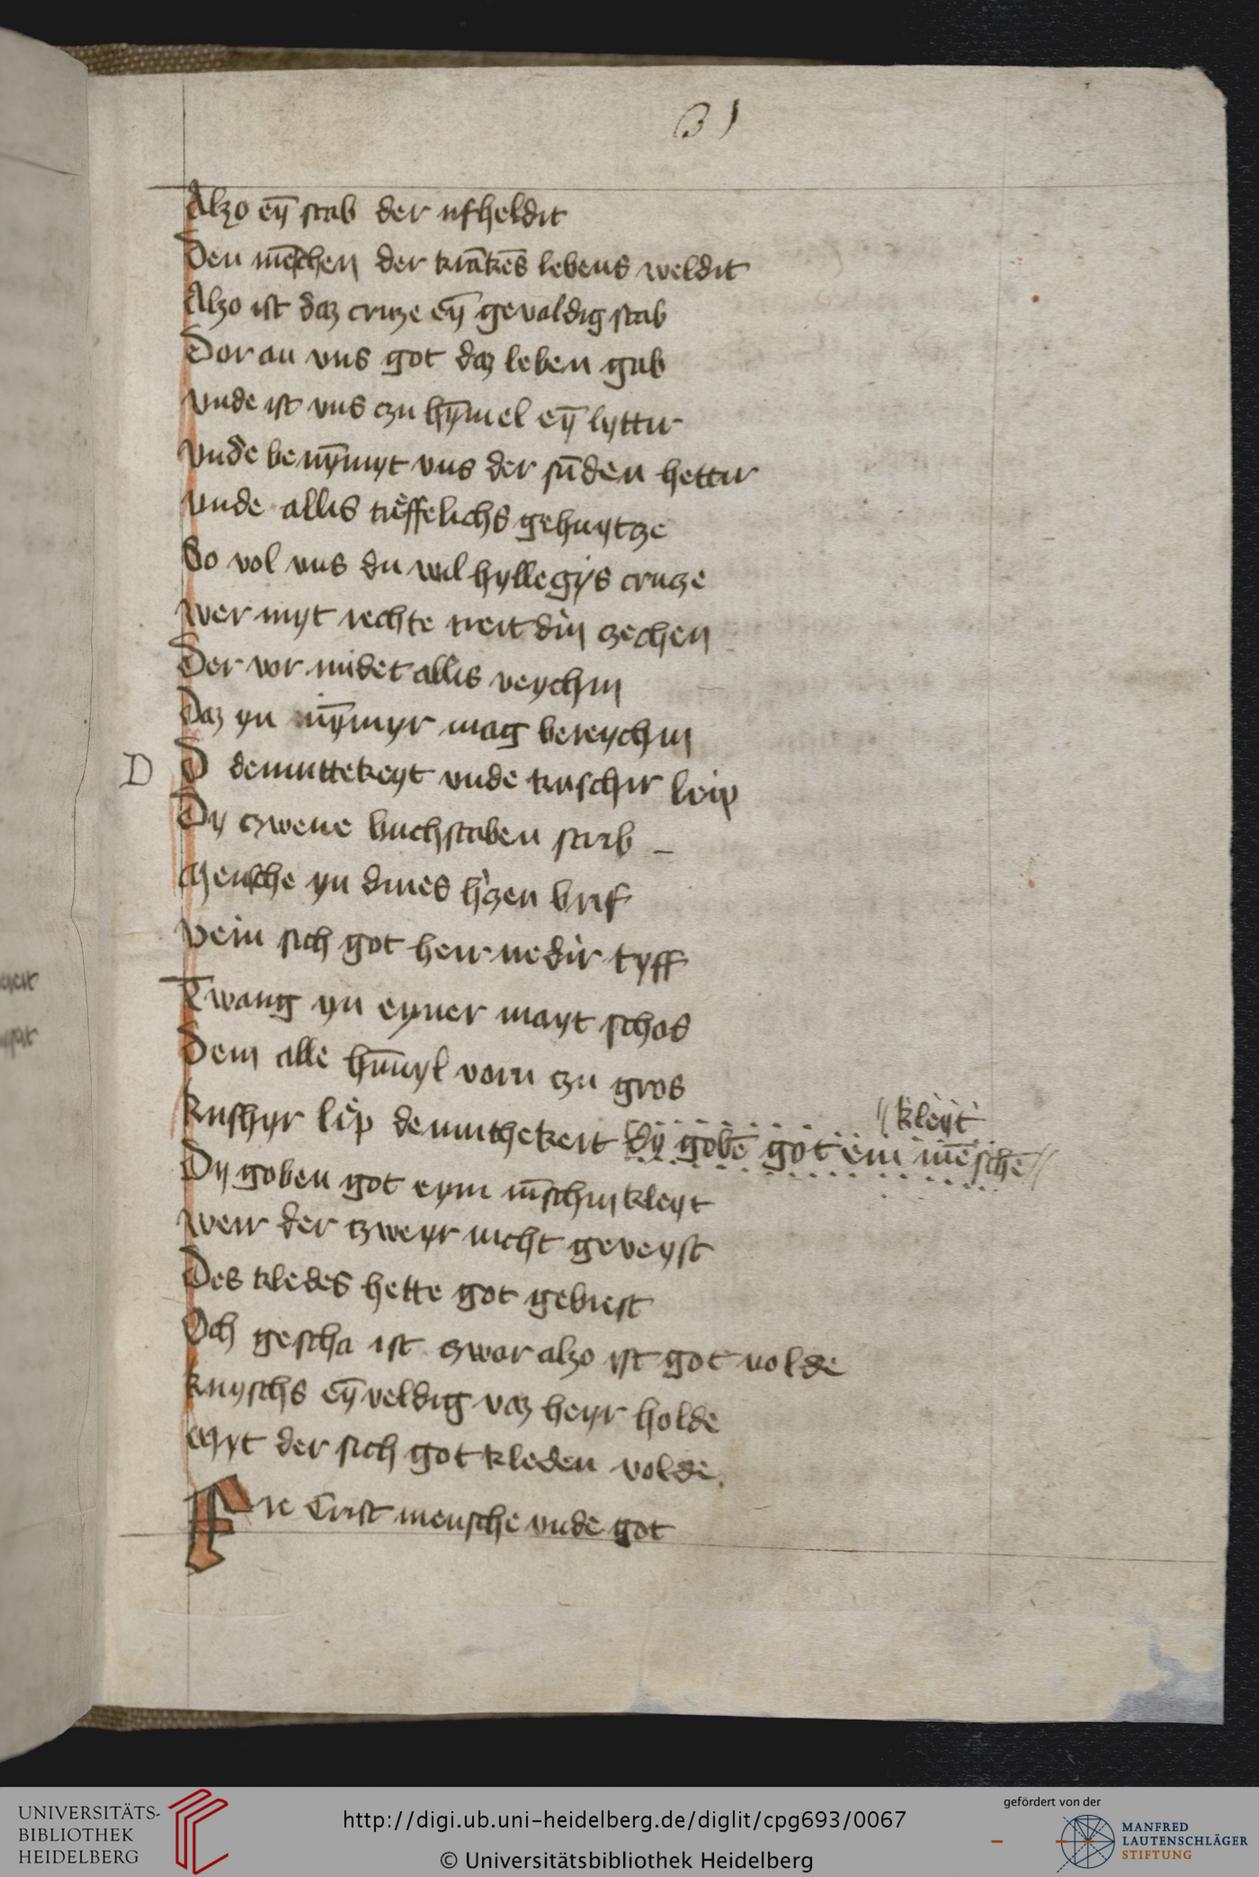 31
Alzo eȳ stab der ufheldit
Den mēschen der krākēs lebens weldit
Alzo ist daz cruze eȳ gevaldig stab
Dor an uns got daz leben gab
Vnde ist uns czu hȳmel eȳ lyttir
Vnde benȳmyt uns der sūden hettir
Vnde allis tuͤffelichs gehuytze
So vol uns du vil hyllegis cruze
Wer myt rechte treit din czechen
Der vor midet allis veychin
Daz yn nȳmyr mag bereychin
D
O demuttekeyt vnde kuschir leip
Dy czwene buchstaben scrib
Mensche yn dines h'zen brif
Vein sich got herr nedir tyff
Twang yn eyner mayt schos
Dem alle hūmyl vorn czu gros
Kuschyr lip demuthekeit dy gobē got eim mēschē
kleyt
Dy goben got eym m̄schin kleyt
Weir der czweyr nicht geveyst
Des kledes hette got gebrest
Och gescha ist czwar alzo ist got volde
Kuyschs eȳveldig vaz heyr holde
Myt der sich got kleden volde
Ere Crist mensche vnde got
UNIVERSITÄTS-
BIBLIOTHEK
HEIDELBERG
http://digi.ub.uni-heidelberg.de/diglit/cpg693/0067
© Universitätsbibliothek Heidelberg
gefördert von der
MANFRED
LAUTENSCHLÄGER
STIFTUNG